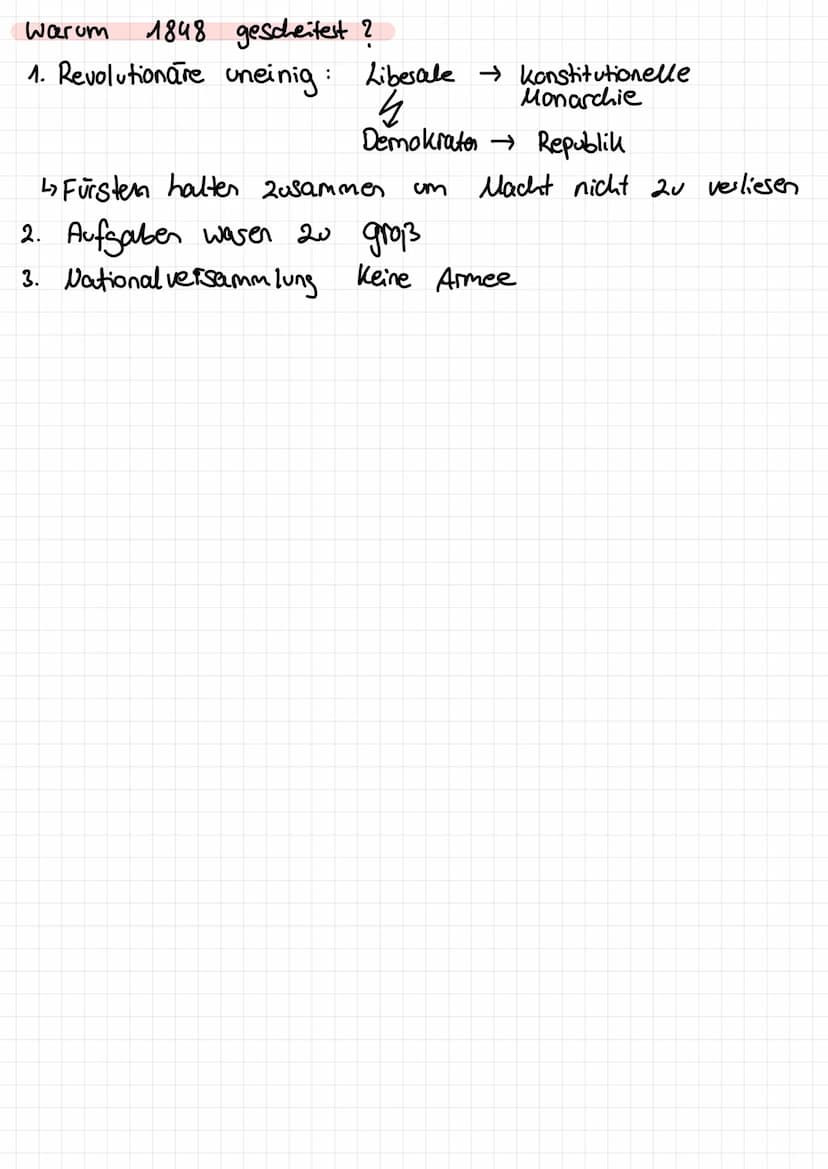 Warum 1848 gescheitert?
1. Revolutionäre uneinig: Liberale → Konstitutionelle
Monarchie
Demokraten → Republik
↳ Fürsten halten zusammen um Macht nicht zu verlieren
2. Aufgaben waren zu groß
3. Nationalversammlung keine Armee